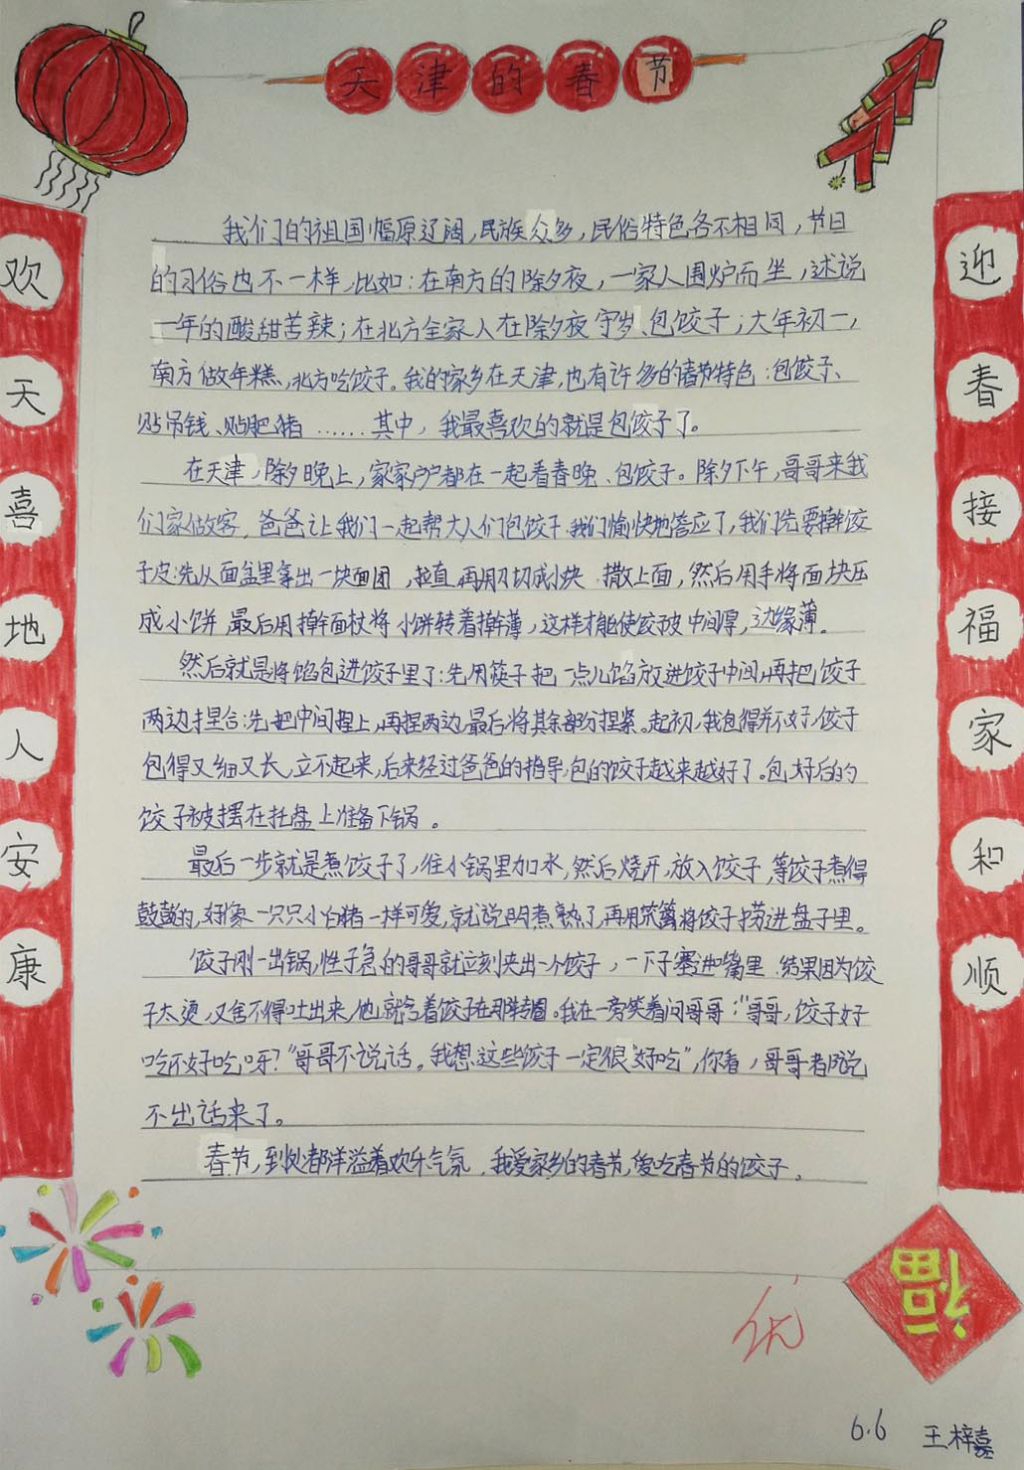 天津的春节
欢天喜地人安康
迎春接福家和顺
我们的祖国幅原辽阔，民族众多，民俗特色各不相同，节日
的习俗也不一样，比如：在南方的除夕夜，一家人围炉而坐，述说
一年的酸甜苦辣；在北方全家人在除夕夜守岁、包饺子；大年初一，
南方做年糕，北方吃饺子。我的家乡在天津，也有许多的春节特色：包饺子、
贴吊钱、贴肥猪……其中，我最喜欢的就是包饺子了。
在天津，除夕晚上，家家户户都在一起看春晚、包饺子。除夕下午，哥哥来我
们家做客，爸爸让我们一起帮大人们包饺子，我们愉快地答应了，我们先要擀饺
子皮：先从面盆里拿出一块面团，拉直，再用刀切成小块，撒上面，然后用手将面块压
成小饼，最后用擀面杖将小饼转着擀薄，这样才能使饺子皮中间厚，边缘薄。
然后就是将馅包进饺子里了：先用筷子把一点儿馅放进饺子中间，再把饺子
两边捏合：先把中间捏上，再捏两边，最后将其余部分捏紧。起初，我包得并不好，饺子
包得又细又长，立不起来，后来经过爸爸的指导，包的饺子越来越好了。包好后的
饺子被摆在托盘上准备下锅。
最后一步就是煮饺子了，往小锅里加水，然后烧开，放入饺子，等饺子煮得
鼓鼓的，好像一只只小白猪一样可爱，就说明煮熟了，再用笊篱将饺子捞进盘子里。
饺子刚一出锅，性子急的哥哥就立刻夹出一个饺子，一下子塞进嘴里，结果因为饺
子太烫，又舍不得吐出来，他就含着饺子在那转圈。我在一旁笑着问哥哥：“哥哥，饺子好
吃不好吃呀？”哥哥不说话。我想这些饺子一定很“好吃”，你看，哥哥都说
不出话来了。
春节，到处都洋溢着欢乐气氛，我爱家乡的春节，爱吃春节的饺子。
福
优
6.6 王梓嘉